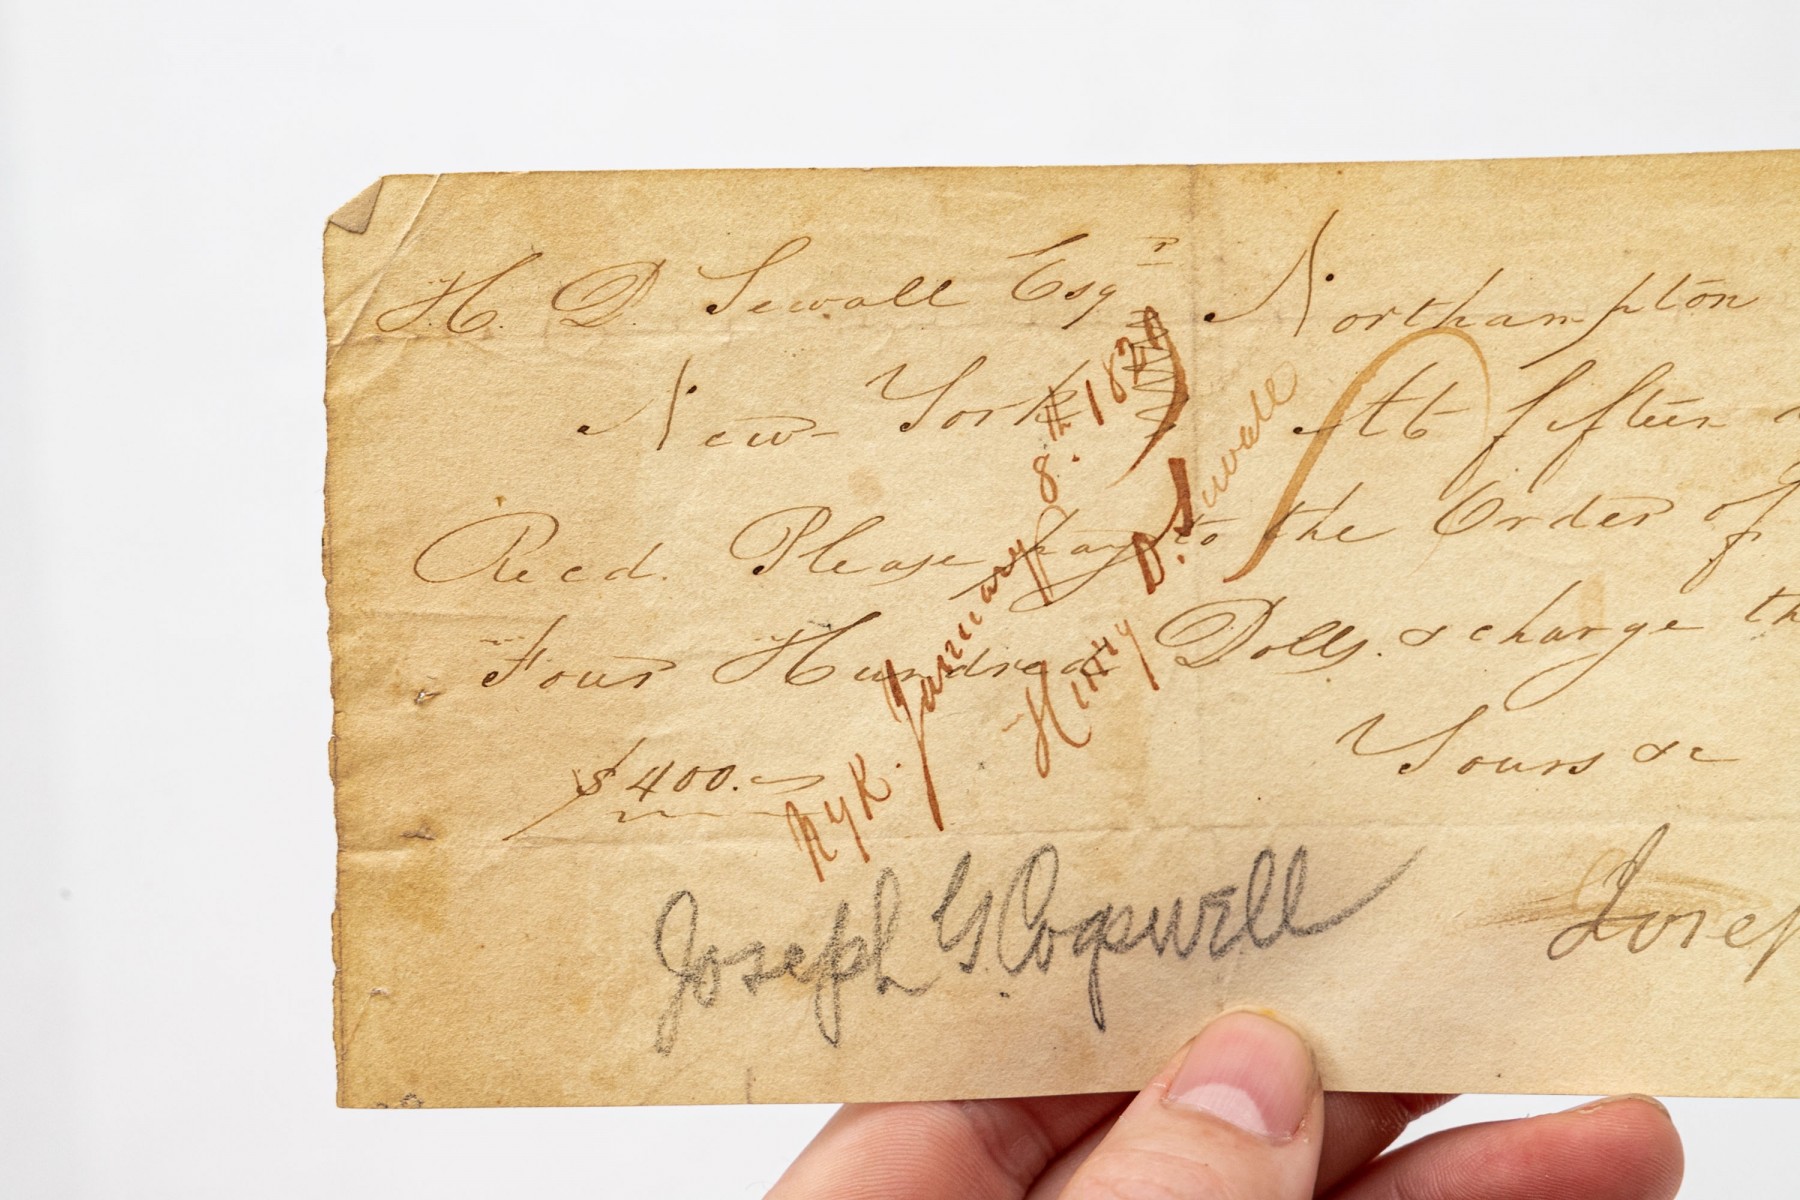 H. D. Sewall Esqr Northampton
New-York At fifteen
Recd. Please pay to the Order of
Four Hundred Dolls. & charge th
$400.
Yours &c
Josep
NYK. January 8.th 182
Henry D. Sewall
Joseph G. Cogswell